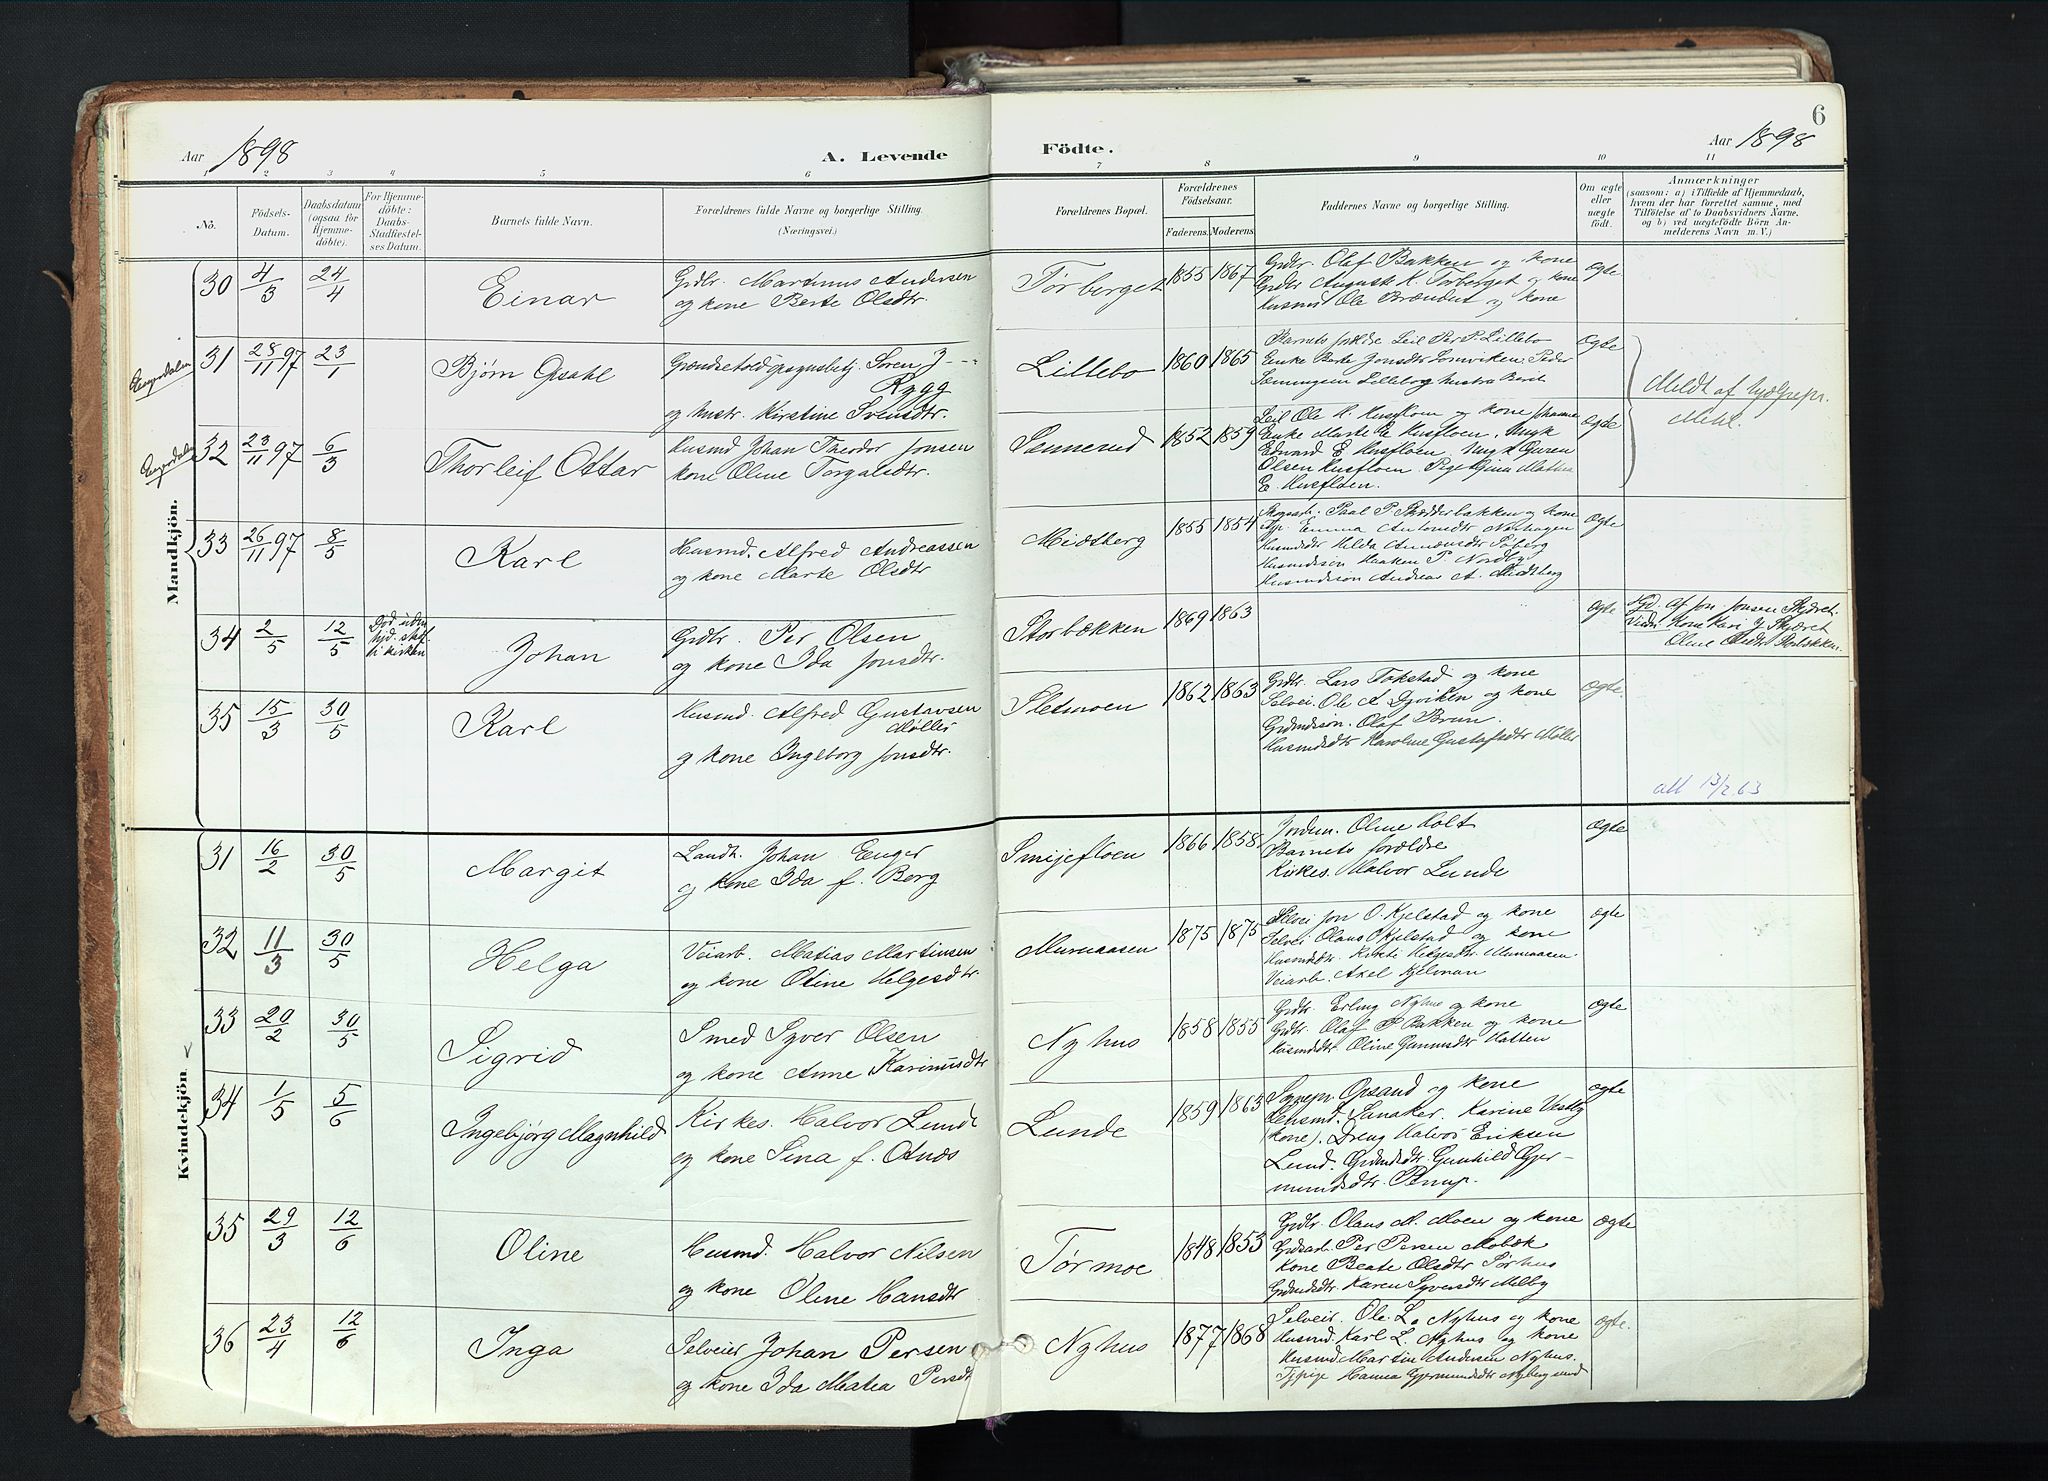 Aar 1898 A. Levende Födte. Aar 1898 6
1 2 3 4 5 6 7 8 9 10 11
No.
Födsels-Datum.
Daabsdatum (ogsaa for Hjemme-döbte).
For Hjemme-döbte: Daabs-Stadfæstel-ses Datum.
Barnets fulde Navn.
Forældrenes fulde Navne og borgerlige Stilling.
(Næringsvei.)
Forældrenes Bopæl.
Forældrenes Födselsaar.
Faderens. Moderens
Faddernes Navne og borgerlige Stilling.
Om ægte eller uægte födt.
Anmærkninger
(saasom: a) i Tilfælde af Hjemmedaab,
hvem der har forrettet samme, med
Tilföielse af to Daabsvidners Navne,
og b) ved uægtefödte Börn An-
melderens Navn m. V.)
Mandkjön.
30 4/3 24/4 Einar
Grdbr. Martinus Andersen
og kone Berte Olsdtr.
Tørberget 1855 1867
Grdbr. Olaf Bakken og kone
Grdbr August K. Torberget og kone
Husmd Ole Brændut og kone
ægte
Engerdalen
31 28/11 97 23/1 Bjørn Opsahl
Søren J.
Rygg
og hustr. Kirstine Svensdtr.
Lillebo 1860 1865
Barnets forælde Leil Per P. Lillebo
Enke Berte Jonsdtr
ægte
Meldt af
Engerdalen
32 23/11 97 6/3 Thorleif Ottar
Husmd Johan Theodor Jonsen
kone Oline Torgalsdtr.
Sennerud 1852 1859
Leil Ole H. Husfloen og kone Johanne
Enke Marte E Husfloen. Ungk
Edvard E Husfloen, Ungk Guren
Olsen Husfloen. Pige Gina Mathea
E. Husfloen.
ægte
33 26/11 97 8/5 Karl
Husmd. Alfred Andreassen
og kone Marte Olsdtr
Midtberg 1855 1854
Paal P. Bredderbakken og kone
Emma Antonsdtr Norhagen
Husmdsdtr Hilda
Husmdssøn Haaken P. Nordby
Husmdssøn Andreas A. Midtberg
ægte
34 2/5 12/5 Død uden
hjd. stdf.
i kirken
Johan
Grdbr. Per Olsen
og kone Ida Jonsdtr.
Storbækken 1869 1863
ægte
Hjd. af Jon Jonsen Skjæret.
Vidn: Kone Kari J Skjæret
Oline
35 15/3 30/5 Karl
Husmd. Alfred Gustavsen
Møller
og kone Ingeborg Jonsdtr.
Sletmoen 1862 1863
Grdbr. Lars Tokstad og kone
Selvei. Ole A Dyviken og kone
Grdmdssøn. Olaf Brun.
Husmdsdtr Karoline Gustafsdtr Møller
ægte.
att 13/2 63
Kvindekjön.
31 16/2 30/5 Margit
Landh. Johan Enger
og kone Ida f. Berg
Smijefloen 1866 1858
Jordm. Oline Holt
Barnets forælde
Kirkes. Halvor Lunde
ægte
32 11/3 30/5 Helga
Veiarb. Matias Martinsen
og kone Otine Helgesdtr
Murnaasen 1875 1875
Selvei Jon O. Kjelstad og kone
Selvei Olaus O Kjelstad og kone
Husmdsdtr. Kirsti Helgesdtr. Murnaasen.
Veiarb. Axel Hjelman
ægte
33 20/2 30/5 Sigrid
Smed Syver Olsen
og kone Anne Karinusdtr
Nyhus 1858 1855
Grdbr. Erling Nyhus og kone
Grdbr. Olaf P Bakken og kone
Husmdsdtr. Oline Gunnersdtr Hatten
ægte
34 1/5 5/6 Ingebjörg Magnhild
Kirkes. Halvor Lunde
og kone Sina f. Otnæs
Lunde 1859 1863
Sognepr. Opsand og kone
Lensmd. Sunaker. Karine Vestby
(kone). Dreng Halvor Eriksen
Lund. Grdmdsdtr. Gunhild Gjer-
mundsdtr.
ægte
35 29/3 12/6 Oline
Husmd. Halvor Nilsen
og kone Oline Hansdtr
Tørmoe 1848 1853
Grdbr. Olaus M. Moen og kone
Grdsarb. Per Persen Mobæk
kone Beate Olsdtr Sørhus
Grdmdsdtr. Karen Syversdtr Melby
ægte
36 23/4 12/6 Inga
Selveier Johan Persen
og kone Ida Matea Persdt
Nyhus 1877 1868
Selveir. Ole L. Nyhus og kone
Husmd. Karl L. Nyhus og kone
Husmd Martin Andersen Nyhus.
Tjpige Hanna Gjermundsdtr Nyberg
ægte.